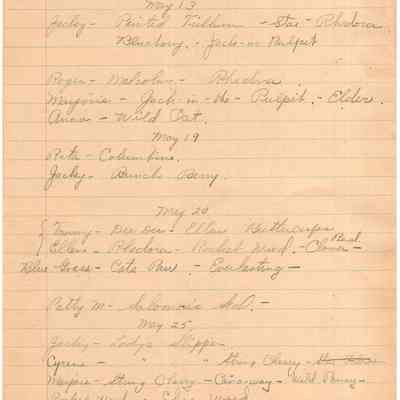 May 13
Jacky - Painted Trillium - Star - Rhodora
Blueberry - Jack-in Pulpit
Roger - Malcolm - Rhodora
Marjorie - Jack-in-the-Pulpit - Elder.
Anna - Wild Oat.
May 19
Rita - Columbine.
Jacky - Bunch Berry.
May 20
Tommy - Dee Dee - Ellen Buttercups
Ellen - Rhodora - Rocket Weed - Clover Red.
Blue Grass - Cats Paw - Everlasting -
Patty M - Solomon's Sol. -
May 25
Jacky - Ladys Slipper -
Cyrena - " " String Cherry -
Marjorie - String Cherry - Caraway - Wild Pansy -
Rocket Weed -